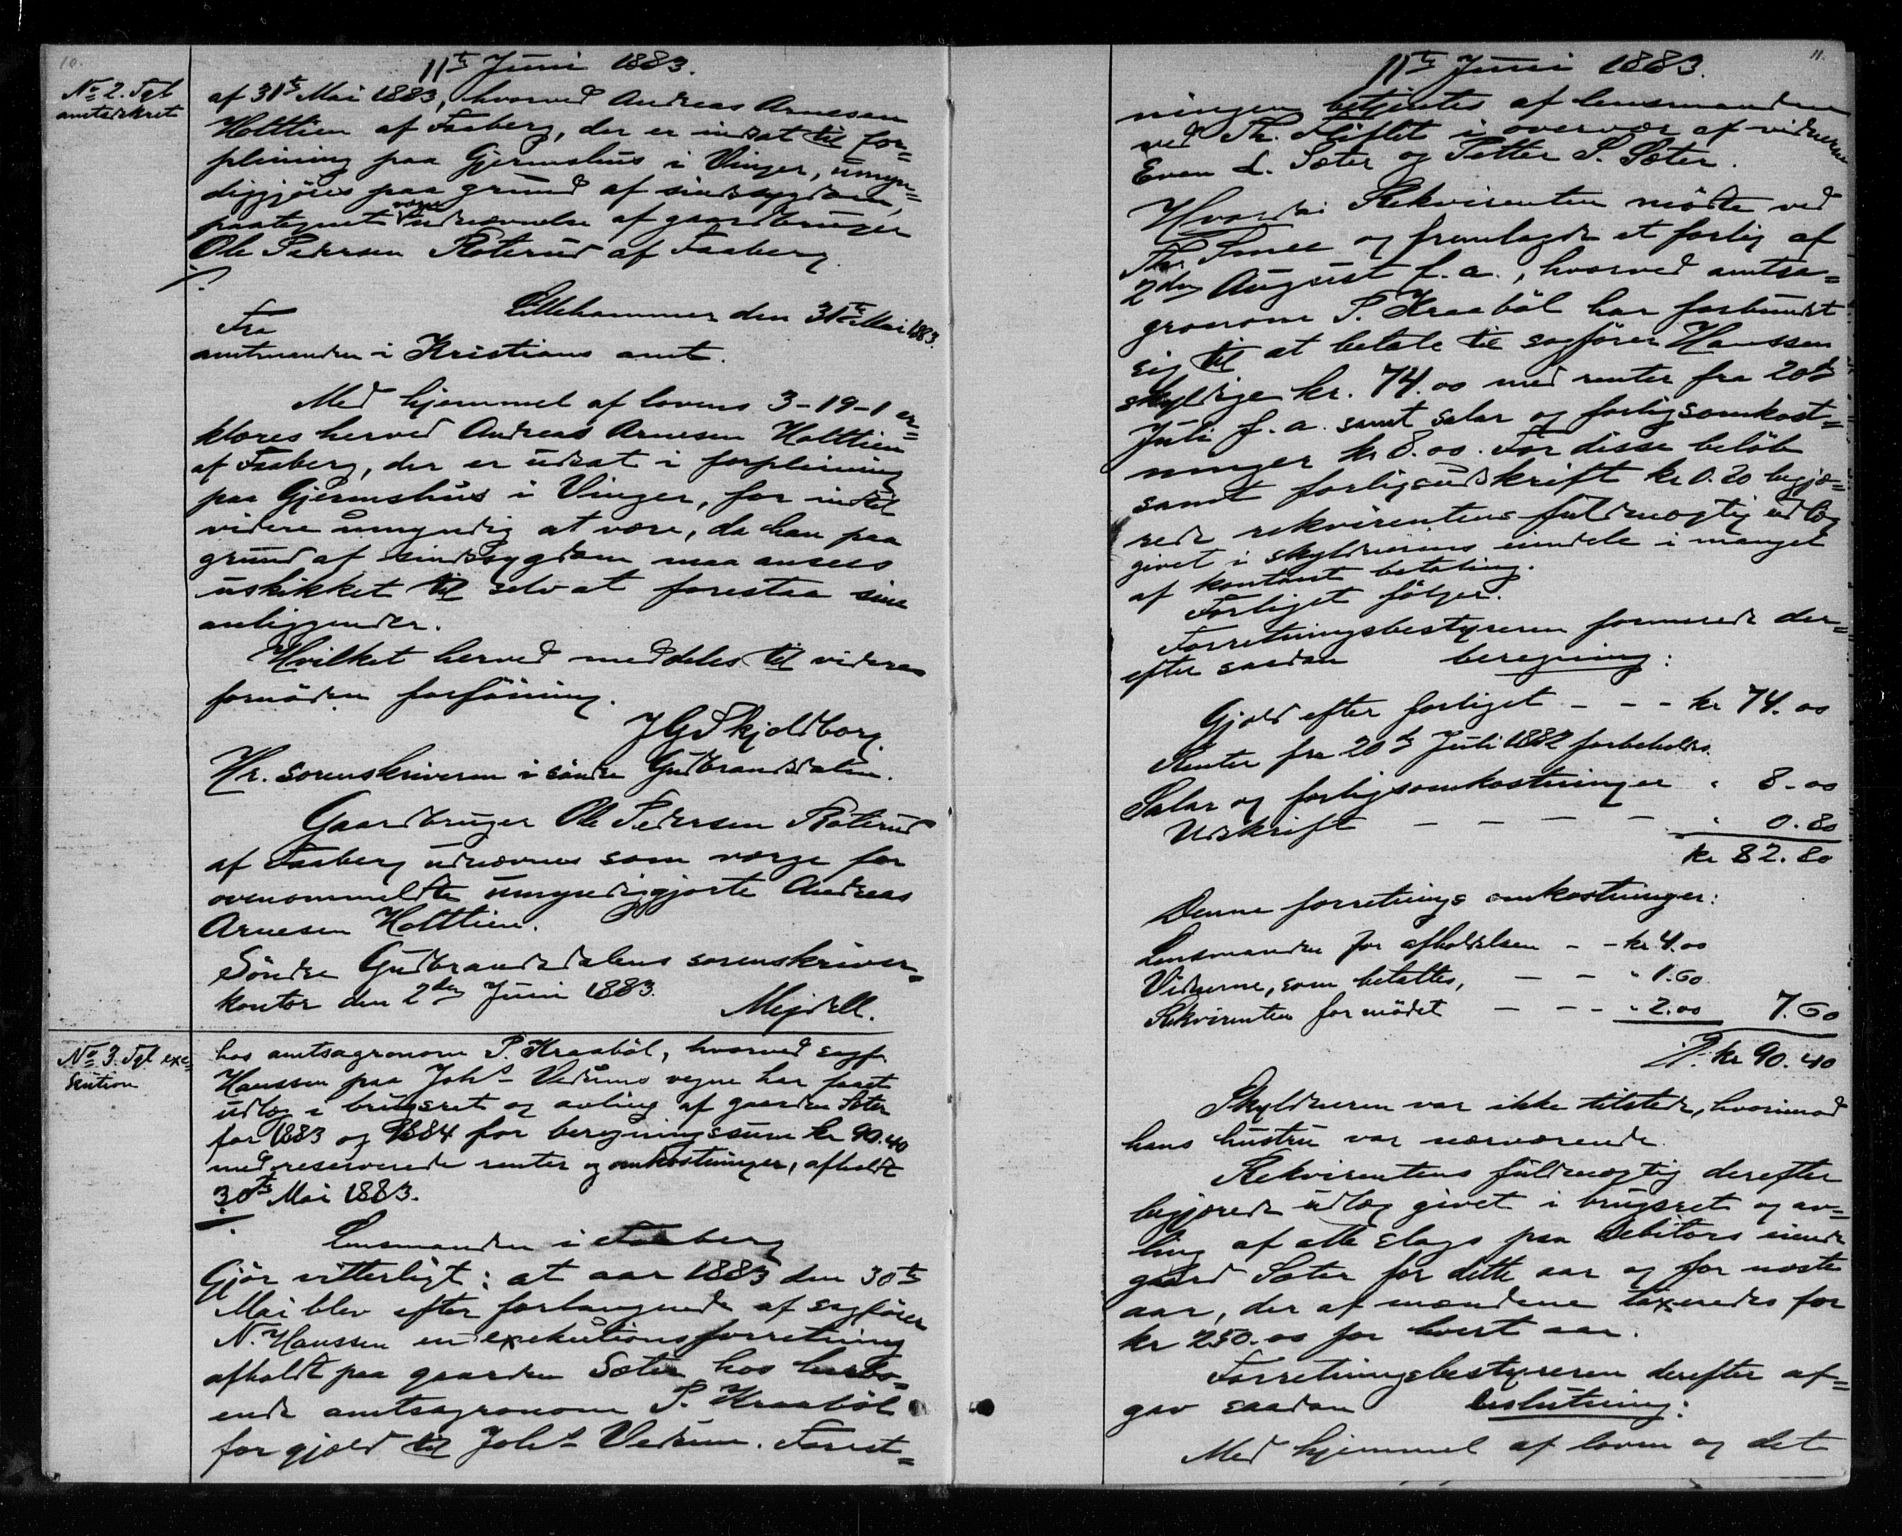 10.
11te Juni 1883.
No 2. Tgl.
amtsdekret
af 31te Mai 1883, hvorved Andreas Arnesen
Holttien af Faaberg, der er indsat til for=
pleining paa Gjermshus i Vinger, umyn=
diggjöres paa grund af sindssygdom,
paategnet værge udnævnelse af gaardbruger
Ole Pedersen Roterud af Faaberg.
Lillehammer den 31te Mai 1883.
Fra
amtmanden i Kristians amt.
Med hjemmel af lovens 3-19-1 er=
klæres herved Andreas Arnesen Holttien
af Faaberg, der er udsat i forpleining
paa Gjermshus i Vinger, for indtil
videre umyndig at være, da han paa
grund af sindssygdom maa ansees
uskikket til selv at forestaa sine
anliggender.
Hvilket herved meddeles til videre
fornöden forföining.
J G Skjoldborg.
Hr. sorenskriveren i söndre Gudbrandsdalen.
Gaardbruger Ole Pedersen Roterud
af Faaberg udnævnes som værge for
ovenommeldte umyndiggjorte Andreas
Arnesen Holttien.
Söndre Gudbrandsdalens sorenskriver=
kontor den 2den Juni 1883.
Mejdell.
No 3. Tgl. exe=
kution
hos amtsagronom P. Kraaböl, hvorved sagf.
Hanssen paa Johs Vedums vegne har faaet
udlæg i brugsret og avling af gaarden Sæter
for 1883 og 1884 for beregningssum kr 90.40
med reserverede renter og omkostninger, afholdt
30te Mai 1883.
Lensmanden i Faaberg
Gjör vitterligt: at aar 1883 den 30te
Mai blev efter forlangende af sagförer
N. Hanssen en exekutionsforretning
afholdt paa gaarden Sæter hos
ende amtsagronom P. Kraaböl
for gjæld til Johs Vedum. Forret=
11.
11te Juni 1883.
ningen betjentes af lensmanden
ved Th. Stiftet i overvær af vidnerne
Even L. Sæter og Petter P. Sæter.
Hvorda Rekvirenten mödte ved
Th. Smee og fremlagde et forlig af
2den August f. a., hvorved amtsa=
gronom P. Kraaböl har forbundet
sig til at betale til sagförer Hanssen
skyldige kr. 74.00 med renter fra 20de
Juli f. a. samt salær og forligsomkost=
ninger kr 8.00. For disse beløb
samt forligsudskrift kr 0.80 begjæ=
rede rekvirentens fuldmægtig udlæg
givet i skyldnerens eiendele i mangel
af kontant betaling.
Forliget fölger.
Forretningsbestyreren formerede der=
efter saadan beregning:
Gjæld efter forliget - - - kr 74.00
Renter fra 20de Juli 1882 forbeholdes.
Salær og forligsomkostninger " 8.00
Udskrift - - - - - " 0.80
kr 82.80
Denne forretnings omkostninger:
Lensmanden for afholdelsen - - kr 4.00
Vidnerne, som betaltes, - - " 1.60
Rekvirenten for mödet - - - " 2.00 7.60
kr 90.40
Skyldneren var ikke tilstede, hvorimod
hans hustru var nærværende.
Rekvirentens fuldmægtig derefter
begjærede udlæg givet i brugsret og av=
ling af alle slags paa Debitors eiende
gaard Sæter for dette aar og for næste
aar, der af mændene taxeredes for
kr 250.00 for hvert aar.
Forretningsbestyreren derefter af=
gav saadan beslutning:
Med hjemmel af loven og det